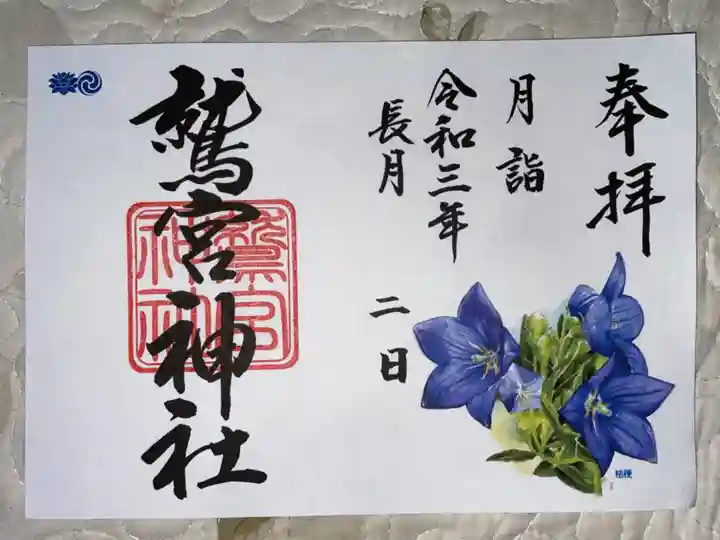 奉拝
月詣
令和三年
長月 二日
鷲宮神社
鷲宮
神社
桔梗